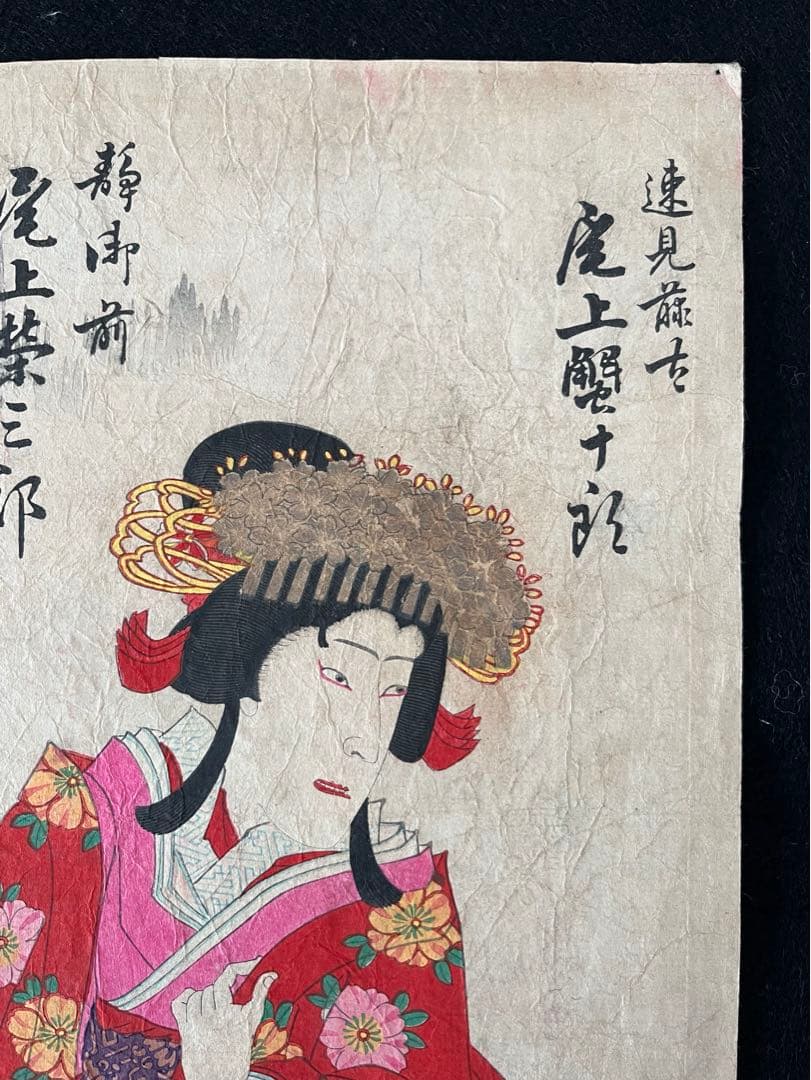 速見藤太
尾上蟹十郎
静御前
尾上榮三郎